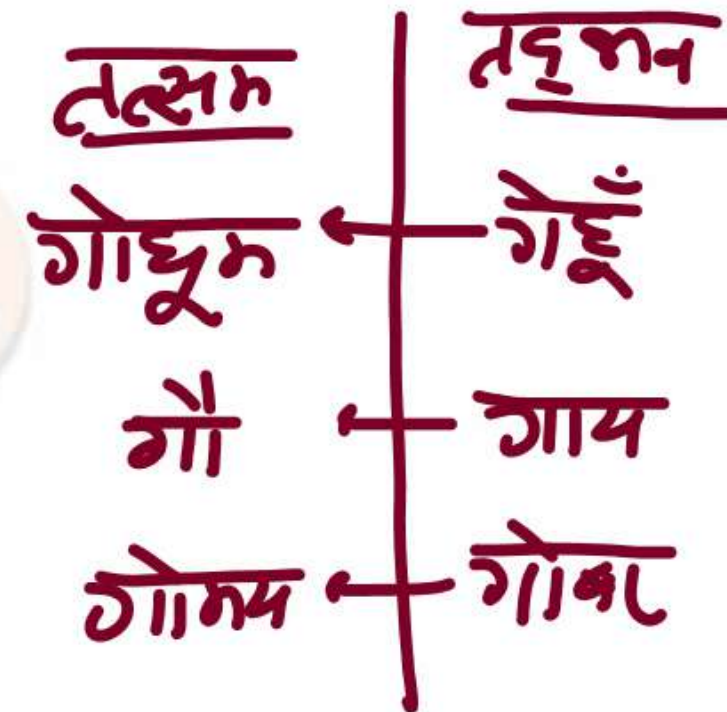 तत्सम तद्भव
गोधूम ← गेहूँ
गौ ← गाय
गोमय ← गोबर